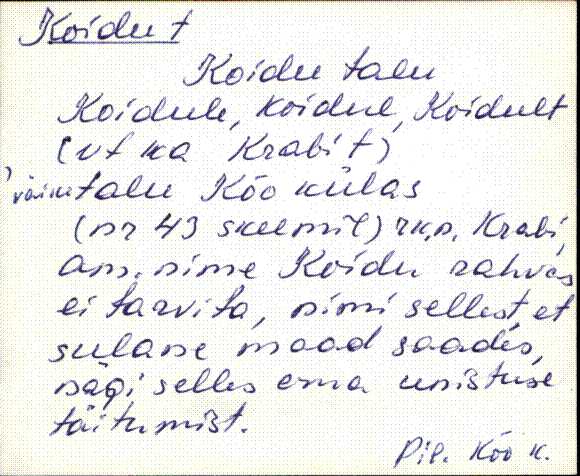 Koidu t
Koidu talu
Koidule, Koidul, Koidult
(vt ka Krabi t)
väiketalu Kõo külas
(nr 43 skeemil) rk.n. Krabi,
am. nime Koidu rahvas
ei tarvita, nimi sellest, et
sulane maad saades,
nägi selles oma unistuse
täitumist.
Pil. Kõo k.